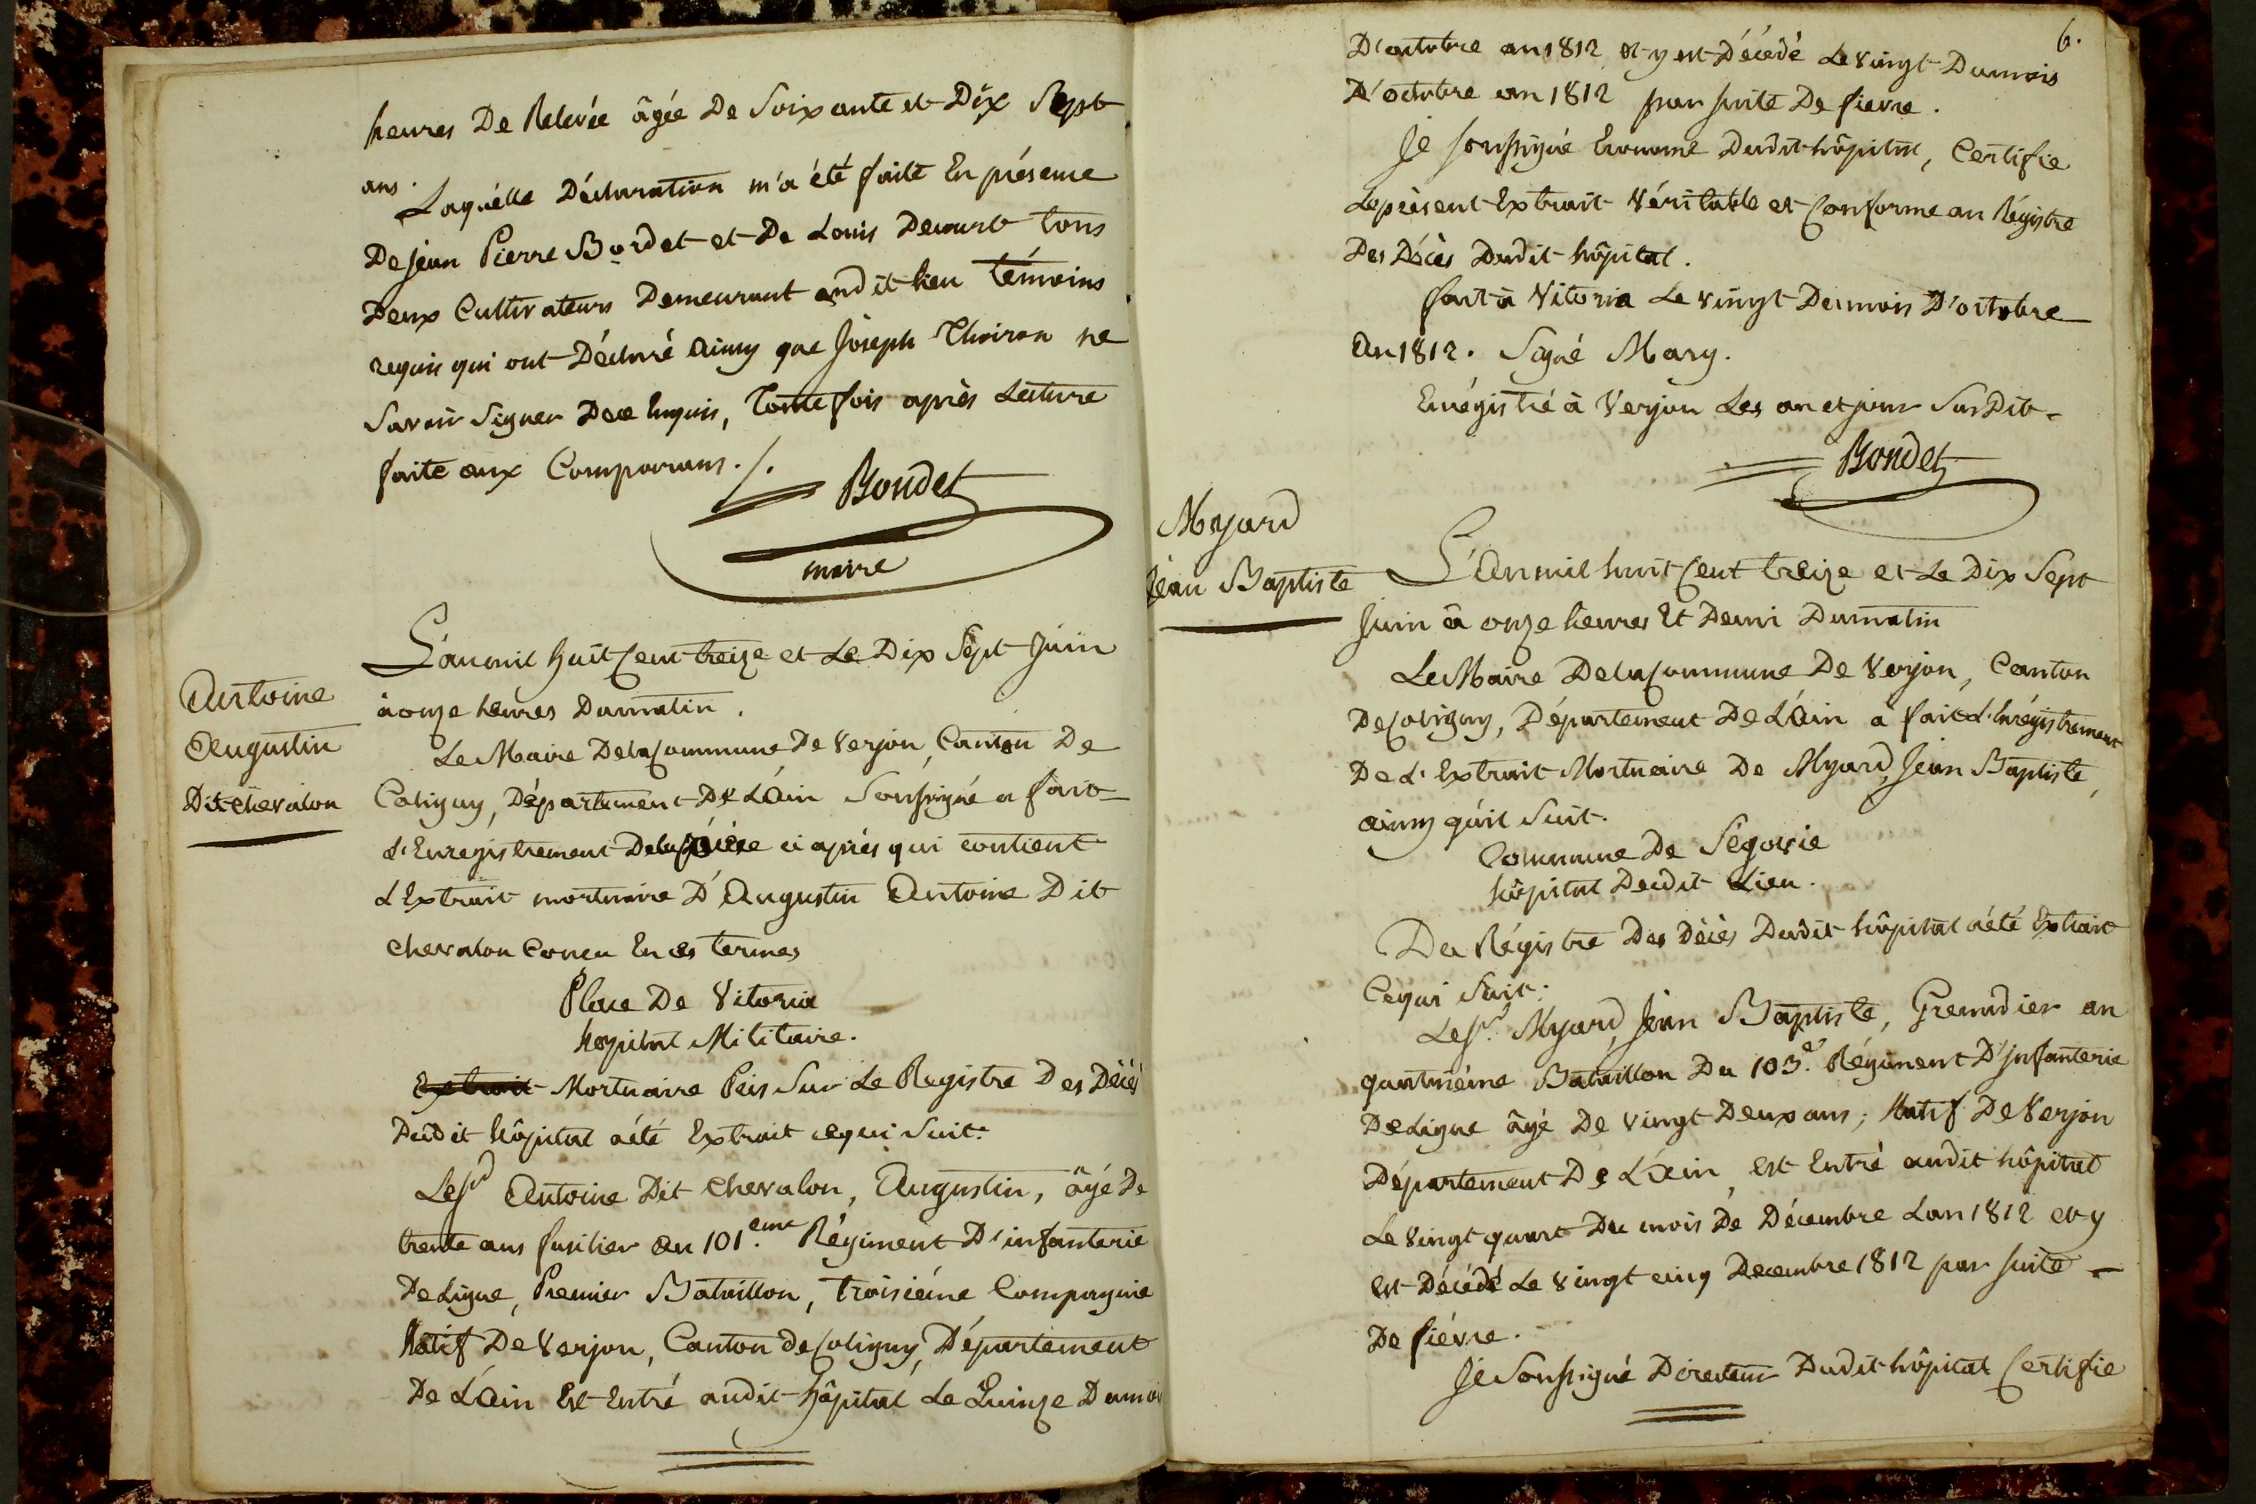 heures De Relevée âgée De Soixante et Dix Sept
ans.
Laquélle Déclaration m'a été faite En présence
De Jean Pierre Bordet et De Louis Decourt tous
Deux Cultivateurs Demeurant audit lieu témoins
requis qui ont Déclaré Ainsy que Joseph Thoiron ne
Savoir Signer De ce Enquis, Toutefois après Lecture
faite aux Comparans ./.
Bondet
maire
Antoine
Augustin
Dit Chevalon
L'an mil huit Cent treize et Le Dix Sept Juin
à onze heures Du matin.
Le Maire De la Commune De Verjon, Canton De
Coligny, Département De L'Ain Soussigné a fait
L'Enregistrement De la pièce ci après qui contient
L'Extrait mortuaire D'Augustin Antoine Dit
Chevalon Concu En ces termes
Place De Vitoria
hopital Militaire.
Extrait Mortuaire Pris Sur Le Registre Des Décès
Dudit hôpital a été Extrait ce qui Suit:
Le Sr Antoine Dit Chevalon, Augustin, âgé De
trente ans fusilier Au 101.eme Régiment D'infanterie
De Ligne, Premier Bataillon, troisiéme Compagnie
Natif De Verjon, Canton de Coligny, Département
De L'Ain Est Entré audit hôpital Le Quinze Du mois
6.
D'octobre an 1812 et y est Décédé Le vingt Du mois
D'octobre an 1812 par suite De fievre.
Je soussigné Econome Dudit hôpital, Certifie
Le présent Extrait Véritable et Conforme au Régistre
Des Décès Dudit hôpital.
fait à Vitoria Le vingt Du mois D'octobre
An 1812. Signé Mary.
Enrégistré à Verjon Les an et jour Susdit
Bondet
Myard
Jean Baptiste
L'An mil huit Cent treize et Le Dix Sept
Juin â onze heures Et Demi Du matin
Le Maire De la Commune De Verjon, Canton
De Coligny, Département De L'Ain a fait L'Enrégistrement
De L'Extrait Mortuaire De Myard, Jean Baptiste,
ainsy qu'il Suit.
Commune De Ségovie
hôpital Dudit Lieu.
Du Régistre Des Décès Dudit hôpital a été Extrait
Ce qui Suit:
Le Sr. Myard, Jean Baptiste, Grenadier au
quatriéme Bataillon Du 103.e Régiment D'Infanterie
De Ligne âgé De vingt Deux ans; Natif De Verjon
Département De L'Ain, est Entré audit hôpital
Le vingt quatre Du mois De Décembre L'an 1812 et y
est Décédé Le vingt cinq Decembre 1812 par suite
De fiévre.
Je Soussigné Directeur Dudit hôpital Certifie